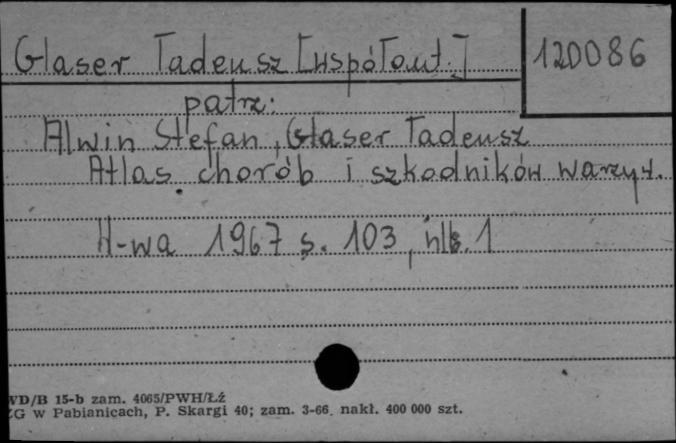 Glaser Tadeusz [współaut.]
120086
patrz:
Alwin Stefan, Glaser Tadeusz
Atlas chorób i szkodników warzyw.
W-wa 1967 s. 103, nlb. 1
WD/B 15-b zam. 4065/PWH/Łź
ZG w Pabianicach, P. Skargi 40; zam. 3-66. nakł. 400 000 szt.